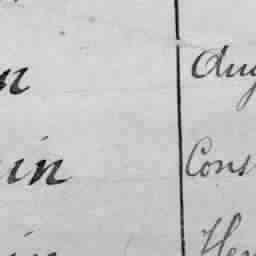 n Aug
in Cons
in Hen